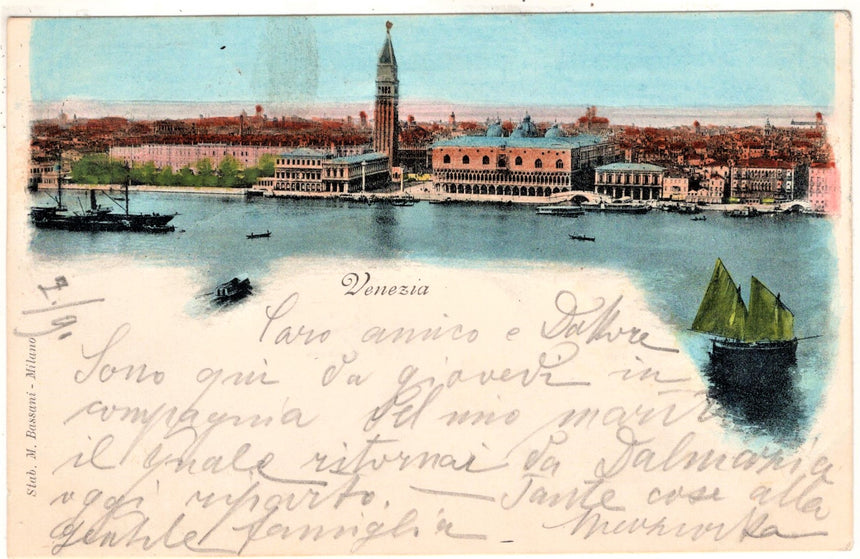 Venezia
7/9.
Caro amico e Dottore
Sono qui da giovedì in
compagnia del mio marit
il quale ritornai da Dalmazia
oggi riparto. — Tante cose alla
gentile famiglia
Stab. M. Bassani - Milano